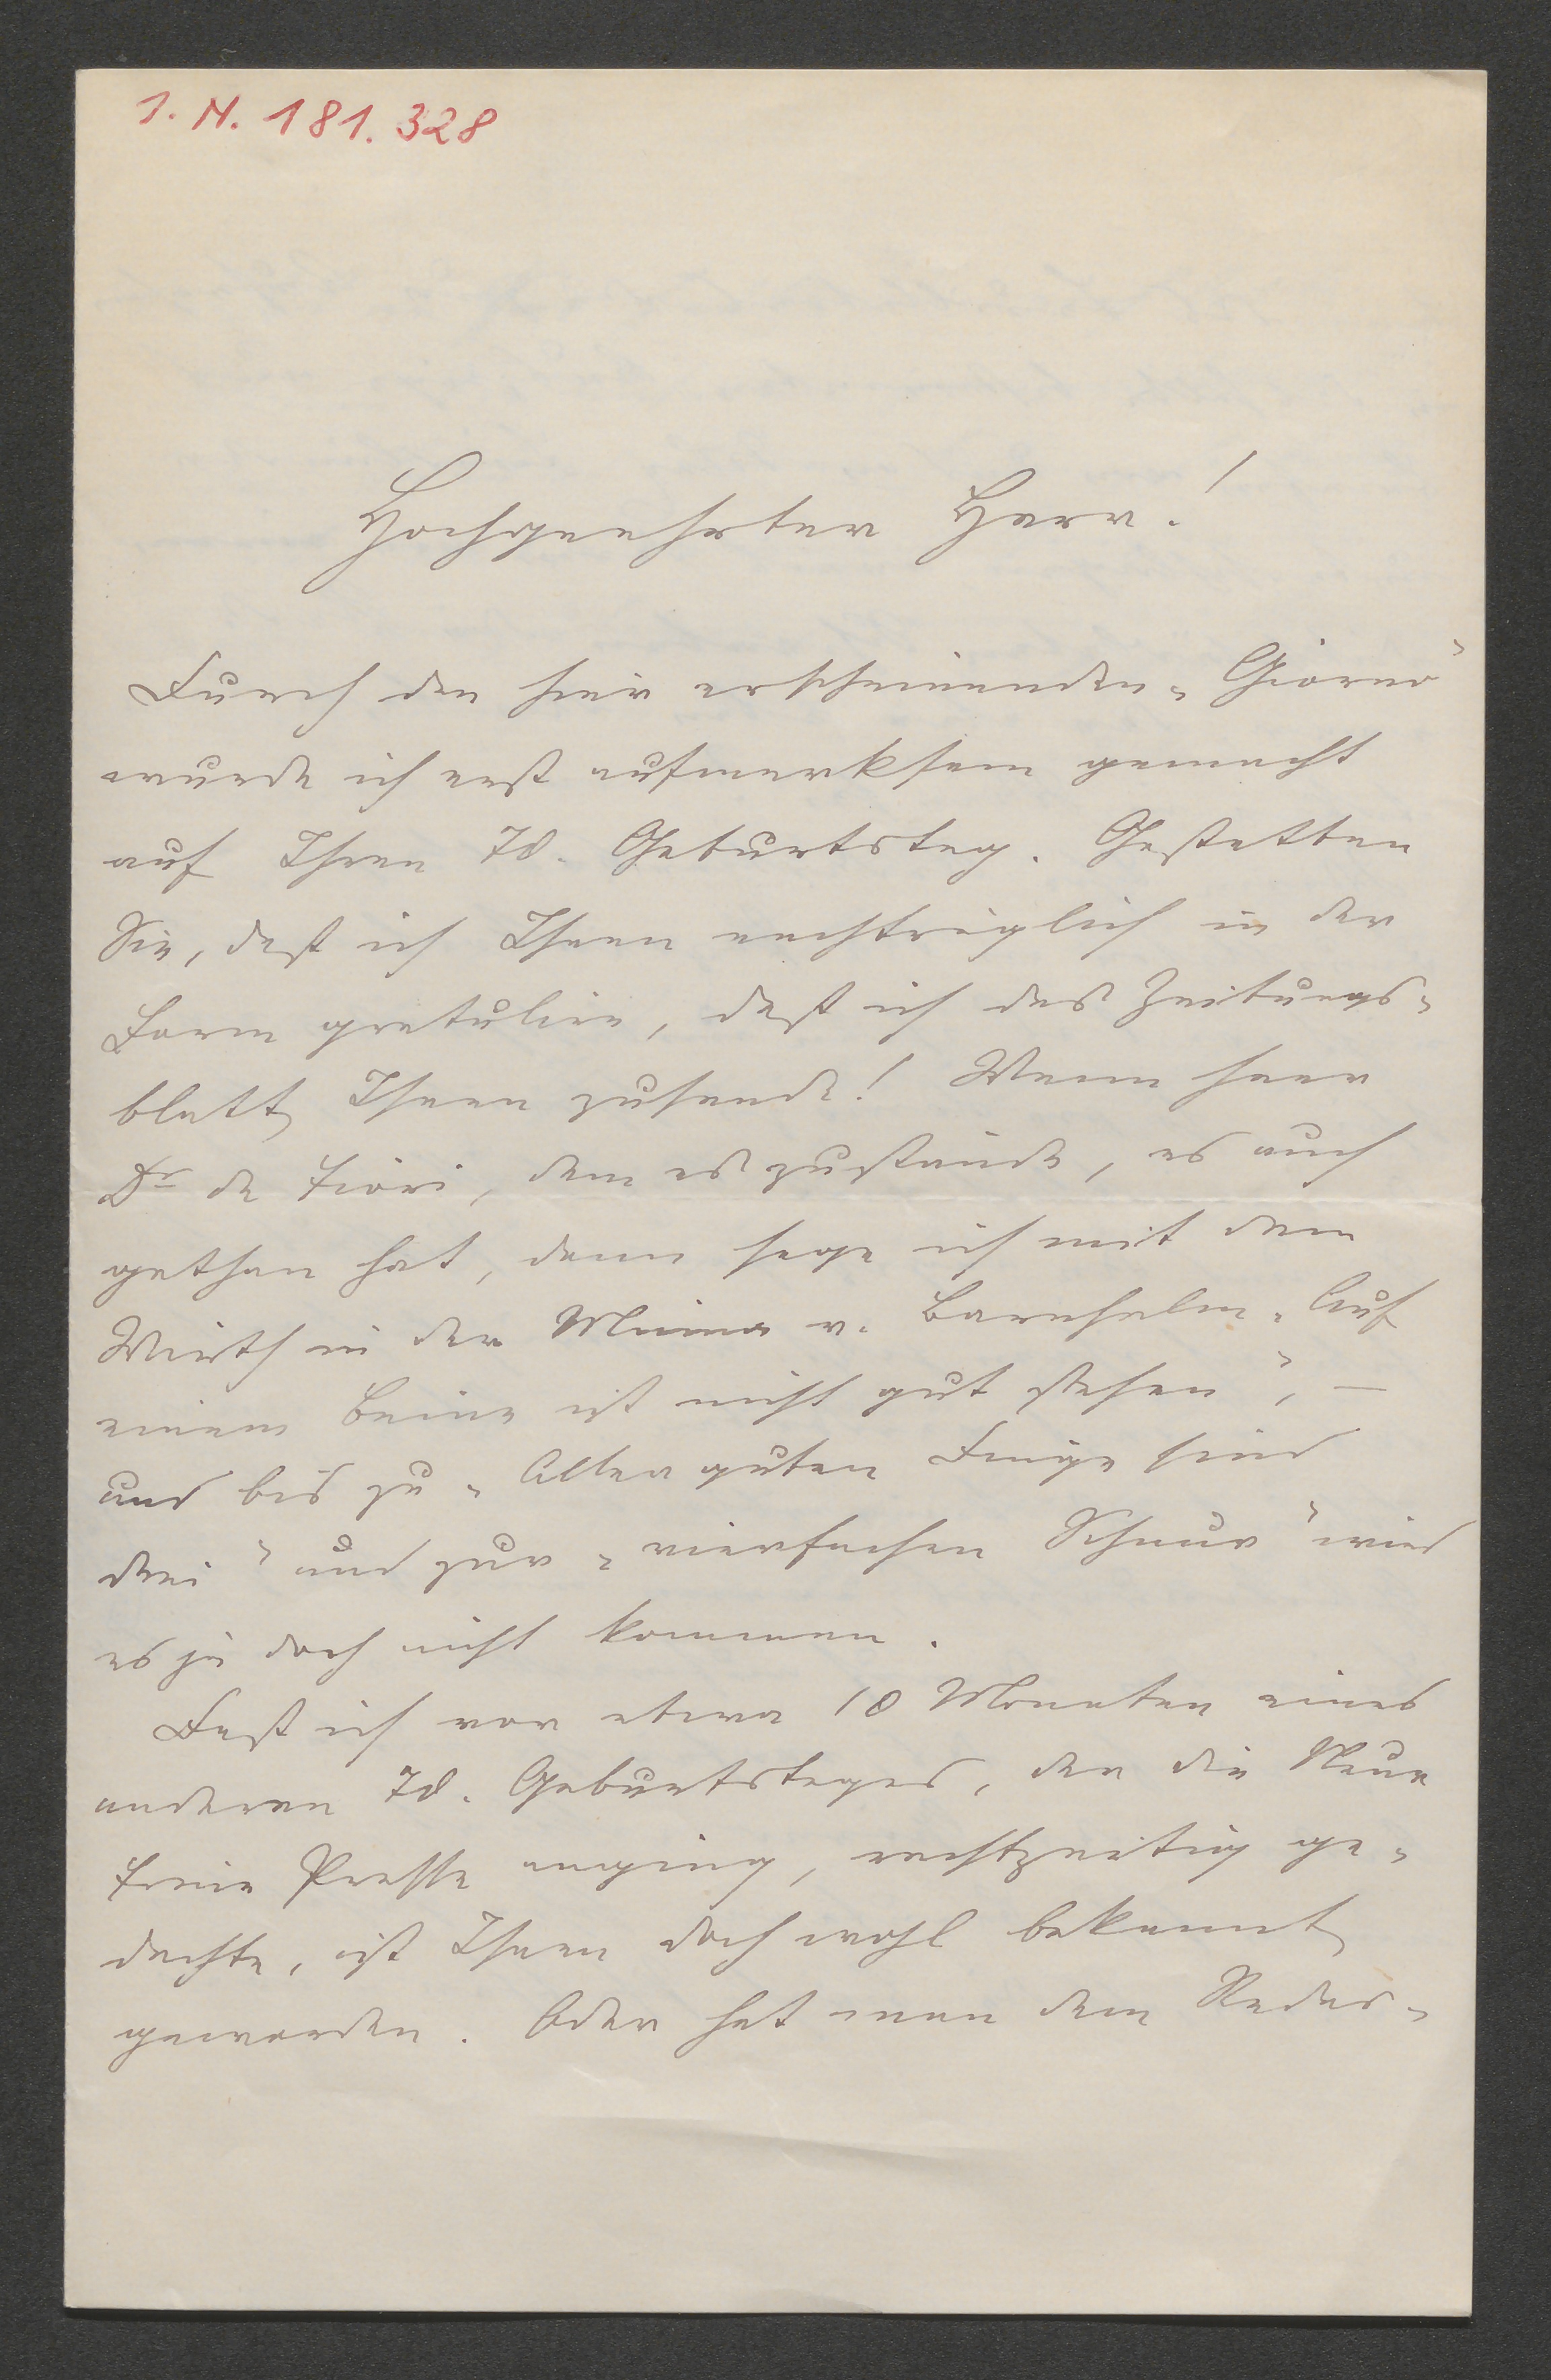 I. N. 181.328
Hochgeehrter Herr!
Durch den hier erscheinenden „Giorno"
wurde ich erst aufmerksam gemacht
auf Ihren 70. Geburtstag. Gestatten
Sie, daß ich Ihnen nachträglich in der
Form gratulire, daß ich das Zeitungs-
blatt Ihnen zusende! Wenn Herr
Dr de Fiori, dem es zustände, es auch
gethan hat, dann sage ich mit dem
Wirth in der Minna v. Barnhelm „Auf
einem Beine ist nicht gut stehen", —
und bis zu „Aller guten Dinge sind
drei" und zur „vierfachen Schnur" wird
es ja doch nicht kommen.
Daß ich vor etwa 10 Monaten eines
anderen 70. Geburtstages, der die Neue
Freie Presse anging, rechtzeitig ge-
dachte, ist Ihnen doch wohl bekannt
geworden. Oder hat man dem Redac-